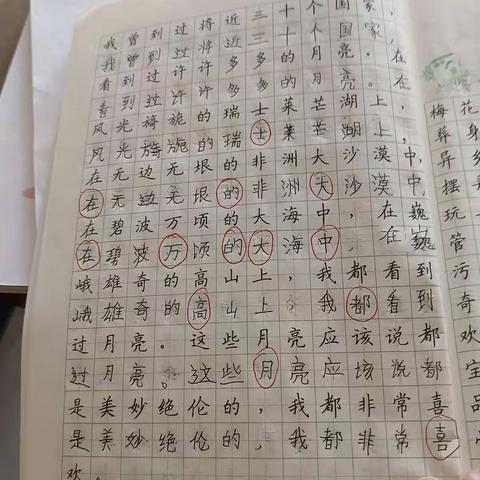 我曾到过将近三十个国家，
我曾到过将近三十个国家，
看到过许许多多的月亮。在
看到过许许多多的月亮。在
风光旖旎的瑞士莱芒湖上，
风光旖旎的瑞士莱芒湖上，
在无边无垠的非洲大沙漠中，
在无边无垠的非洲大沙漠中，
在碧波万顷的大海中，在巍
在碧波万顷的大海中，在巍
峨雄奇的高山上，我都看到
峨雄奇的高山上，我都看到
过月亮。这些月亮应该说都
过月亮。这些月亮应该说都
是美妙绝伦的，我都非常喜
是美妙绝伦的，我都非常喜
欢。
梅花
葬
异
摆
玩
管
污
奇
欢
宝
品